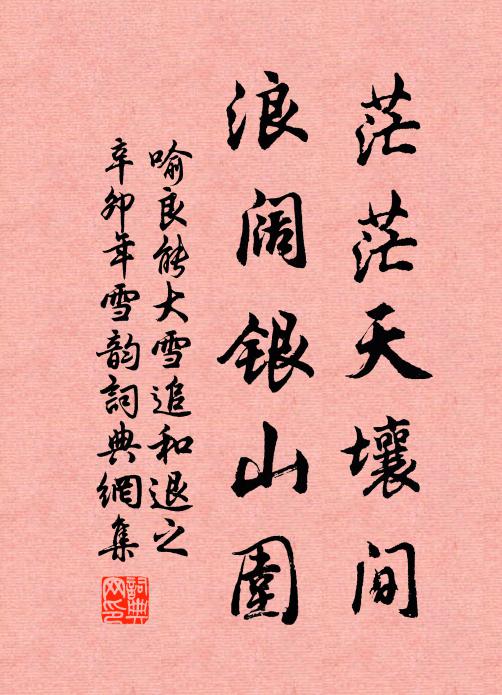 茫茫天壤间
浪阔银山围
喻良能大雪追和退之
辛卯年雪韵詞典網集
詞典
网印